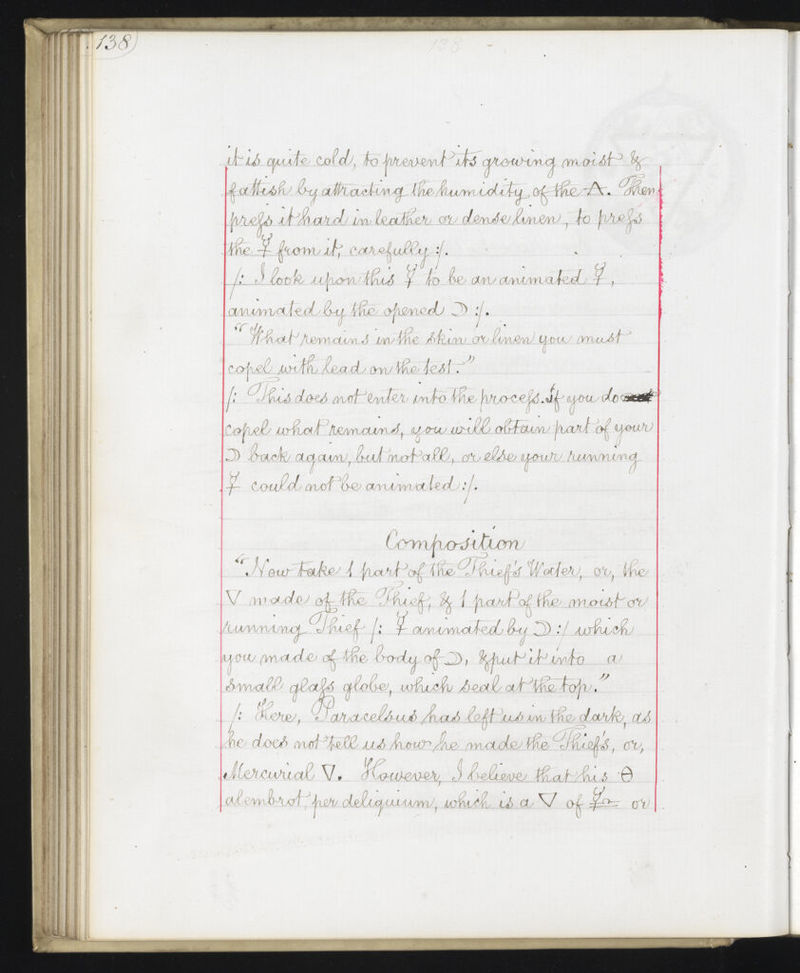 138
it is quite cold, to prevent its growing moist &
fattish by attracting the humidity of the 🜁. Then
press it hard in leather or dense linen, to press
the ☿ from it, carefully :/.
/: I look upon this ☿ to be an animated ☿,
animated by the opened ☽ :/.
"What remains in the skin or linen you must
copel with lead on the test."
/: This does not enter into the process. If you do
copel what remains, you will obtain part of your
☽ back again, but not all, or else your running
☿ could not be animated :/.
Composition
"Now take 1 part of the Thief's Water, or, the
▽ made of the Thief, & 1 part of the moist or
running Thief /: ☿ animated by ☽ :/ which
you made of the body of ☽, & put it into a
small glass globe, which seal at the top."
/: Here, Paracelsus has left us in the dark, as
he does not tell us how he made the Thief's, or,
Mercurial ▽. However, I believe that his ϴ
alembrot per deliquium, which is a ▽ of or